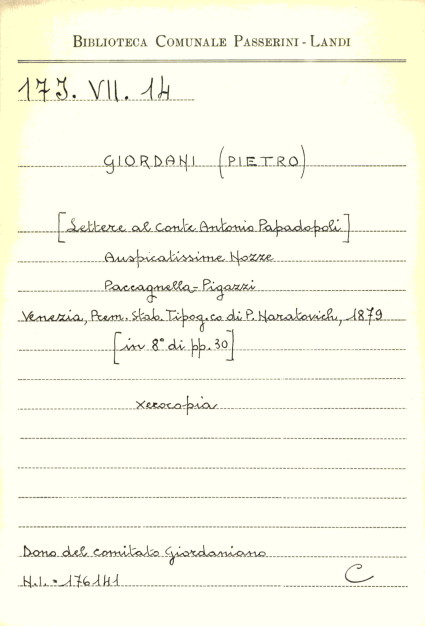 BIBLIOTECA COMUNALE PASSERINI - LANDI
17J. VII. 14
GIORDANI (PIETRO)
[Lettere al conte Antonio Papadopoli]
Auspicatissime Nozze
Paccagnella-Pigazzi
Venezia, Prem. Stab. Tipog.co di P. Naratovich, 1879
[in 8° di pp. 30]
xerocopia
Dono del comitato Giordaniano
N.I. = 176141
C